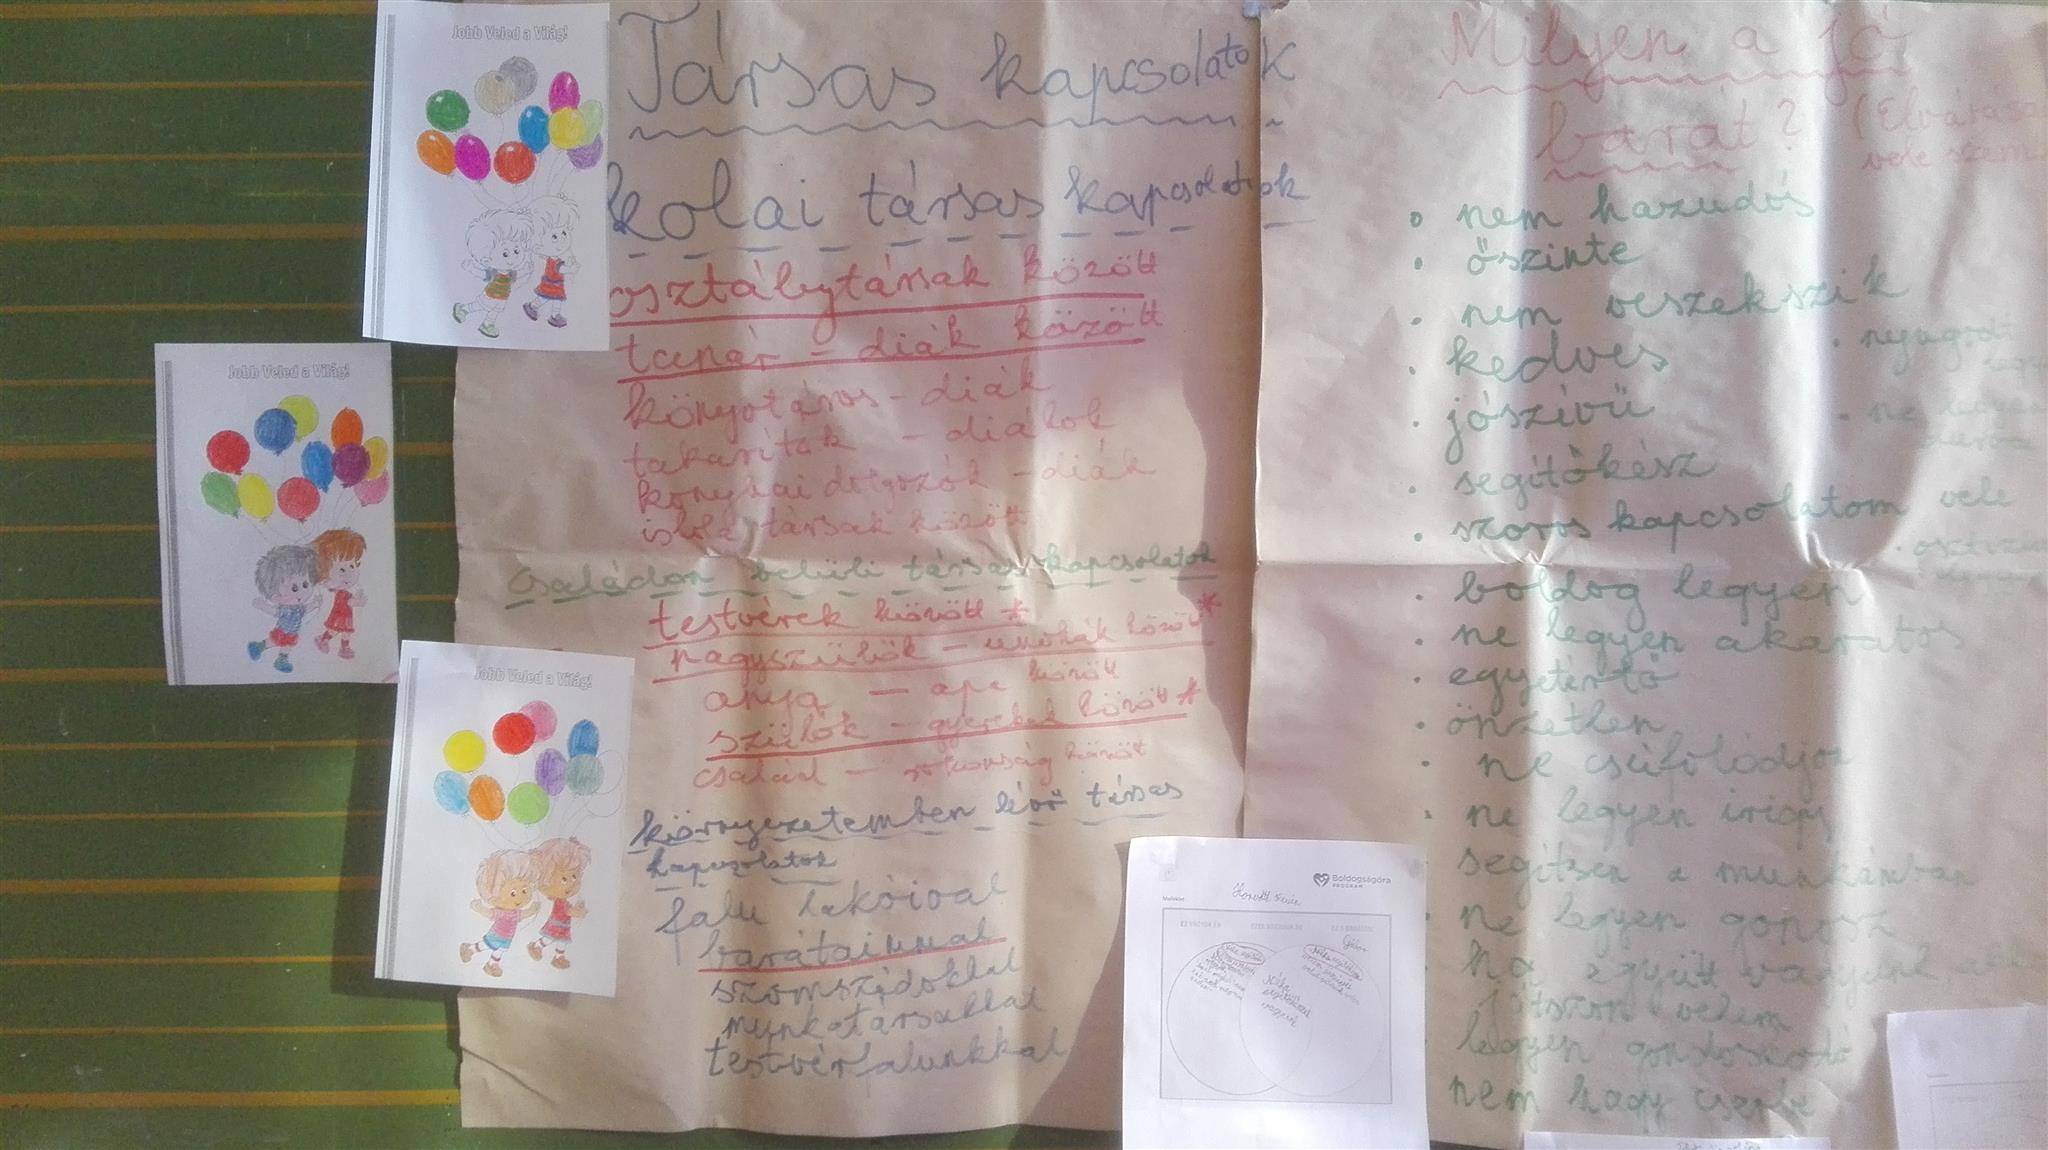 Jobb Veled a Világ!
Jobb Veled a Világ!
Jobb Veled a Világ!
Társas kapcsolatok
kolai társas kapcsolatok
osztálytársak között
tanár - diák között
könyvtáros - diák
takarítók - diákok
konyhai dolgozók - diák
iskola társak között
Családon belüli társas kapcsolatok
testvérek között *
nagyszülők - unokák között *
anya - apa között
szülők - gyerekek között *
család - rokonság között
környezetemben lévő társas
kapcsolatok
falu lakóival
barátaimmal
szomszédokkal
munkatársakkal
testvérfalunkkal
Milyen a jó
barát? (Elvárása
vele szem
• nem hazudós
• őszinte
• nem veszekszik
• kedves
• jószívű
• segítőkész
• szoros kapcsolatom vele
• boldog legyen
• ne legyen akaratos
• egyetértő
• önzetlen
• ne csúfolódjon
• ne legyen irigy
• segítsen a munkámban
• ne legyen gonosz
ha együtt vagyunk,
játszon velem
legyen gondoskodó
nem hagy cserbe
• ne legyen
durva
Boldogságóra
PROGRAM
Melléklet
Gábor
Néha
segítőkészek
vagyunk